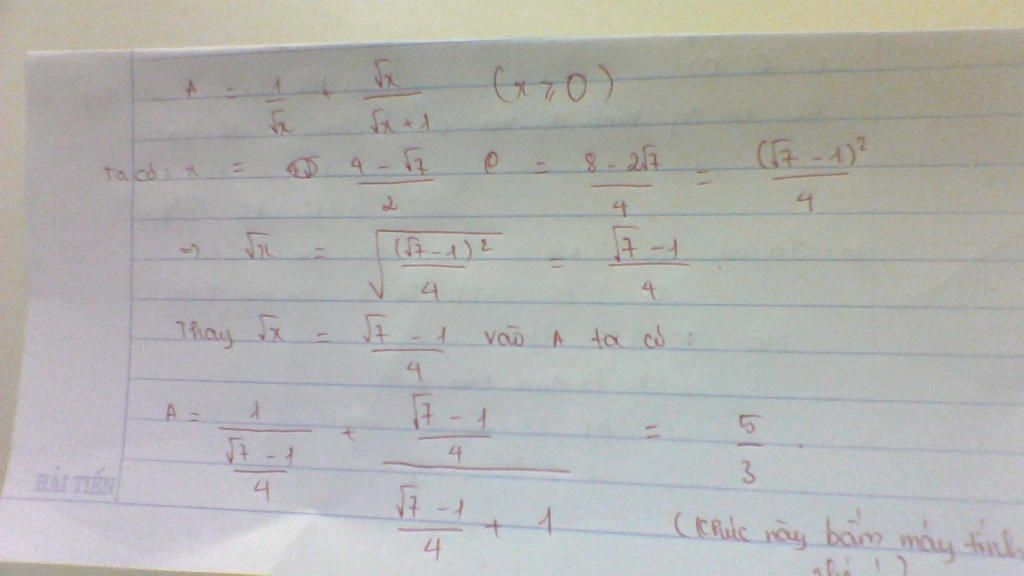 A = 1/√x + √x/(√x + 1) (x ≥ 0)
Ta có: x = (4 - √7)/2 = (8 - 2√7)/4 = (√7 - 1)²/4
=> √x = √((√7 - 1)²/4) = (√7 - 1)/4.
Thay √x = (√7 - 1)/4 vào A ta có:
A = 1/((√7 - 1)/4) + ((√7 - 1)/4)/((√7 - 1)/4 + 1) = 5/3.
HẢI TIẾN
(Khúc này bấm máy tính